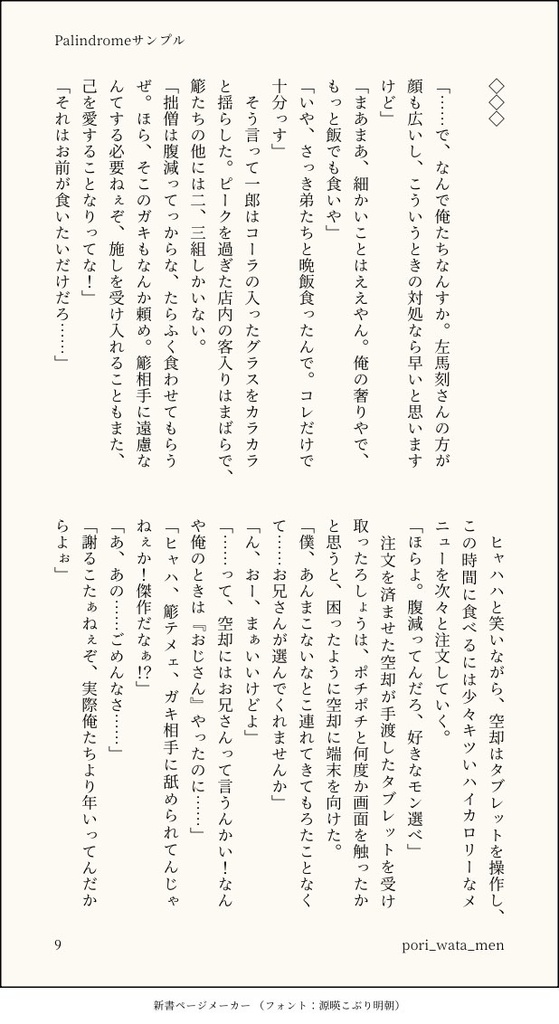 Palindromeサンプル
◇◇◇
「……で、なんで俺たちなんすか。左馬刻さんの方が
顔も広いし、こういうときの対処なら早いと思います
けど」
「まあまあ、細かいことはええやん。俺の奢りやで、
もっと飯でも食いや」
「いや、さっき弟たちと晩飯食ったんで。コレだけで
十分っす」
　そう言って一郎はコーラの入ったグラスをカラカラ
と揺らした。ピークを過ぎた店内の客入りはまばらで、
簓たちの他には二、三組しかいない。
「拙僧は腹減ってっからな、たらふく食わせてもらう
ぜ。ほら、そこのガキもなんか頼め。簓相手に遠慮な
んてする必要ねぇぞ、施しを受け入れることもまた、
己を愛することなりってな！」
「それはお前が食いたいだけだろ……」
　ヒャハハと笑いながら、空却はタブレットを操作し、
この時間に食べるには少々キツいハイカロリーなメ
ニューを次々と注文していく。
「ほらよ。腹減ってんだろ、好きなモン選べ」
　注文を済ませた空却が手渡したタブレットを受け
取ったろしょうは、ポチポチと何度か画面を触ったか
と思うと、困ったように空却に端末を向けた。
「僕、あんまこないなとこ連れてきてもろたことなく
て……お兄さんが選んでくれませんか」
「ん、おー、まぁいいけどよ」
「……って、空却にはお兄さんって言うんかい！なん
や俺のときは『おじさん』やったのに……」
「ヒャハ、簓テメェ、ガキ相手に舐められてんじゃ
ねぇか！傑作だなぁ!?」
「あ、あの……ごめんなさ……」
「謝るこたぁねぇぞ、実際俺たちより年いってんだか
らよぉ」
9
pori_wata_men
新書ページメーカー （フォント：源暎こぶり明朝）